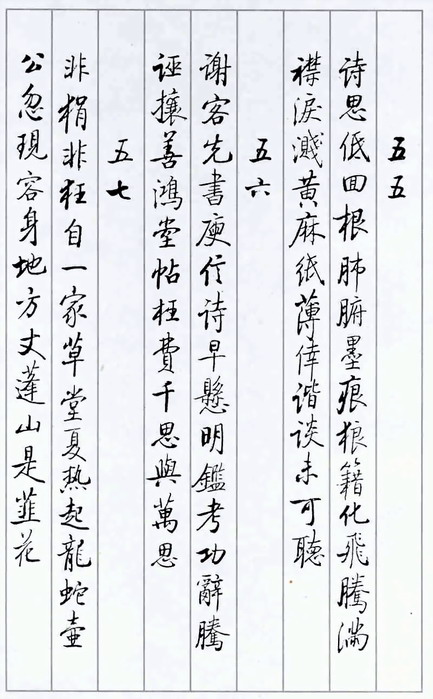 五五
诗思低回根肺腑墨痕狼籍化飛騰滿
襟淚濺黃麻紙薄倖谐谈未可聽
五六
谢客先書庾信诗早懸明鑑考功辭騰
誣攘善鴻堂帖枉費千思與萬思
五七
非狷非狂自一家草堂夏热起龍蛇壶
公忽現容身地方丈蓬山是韭花